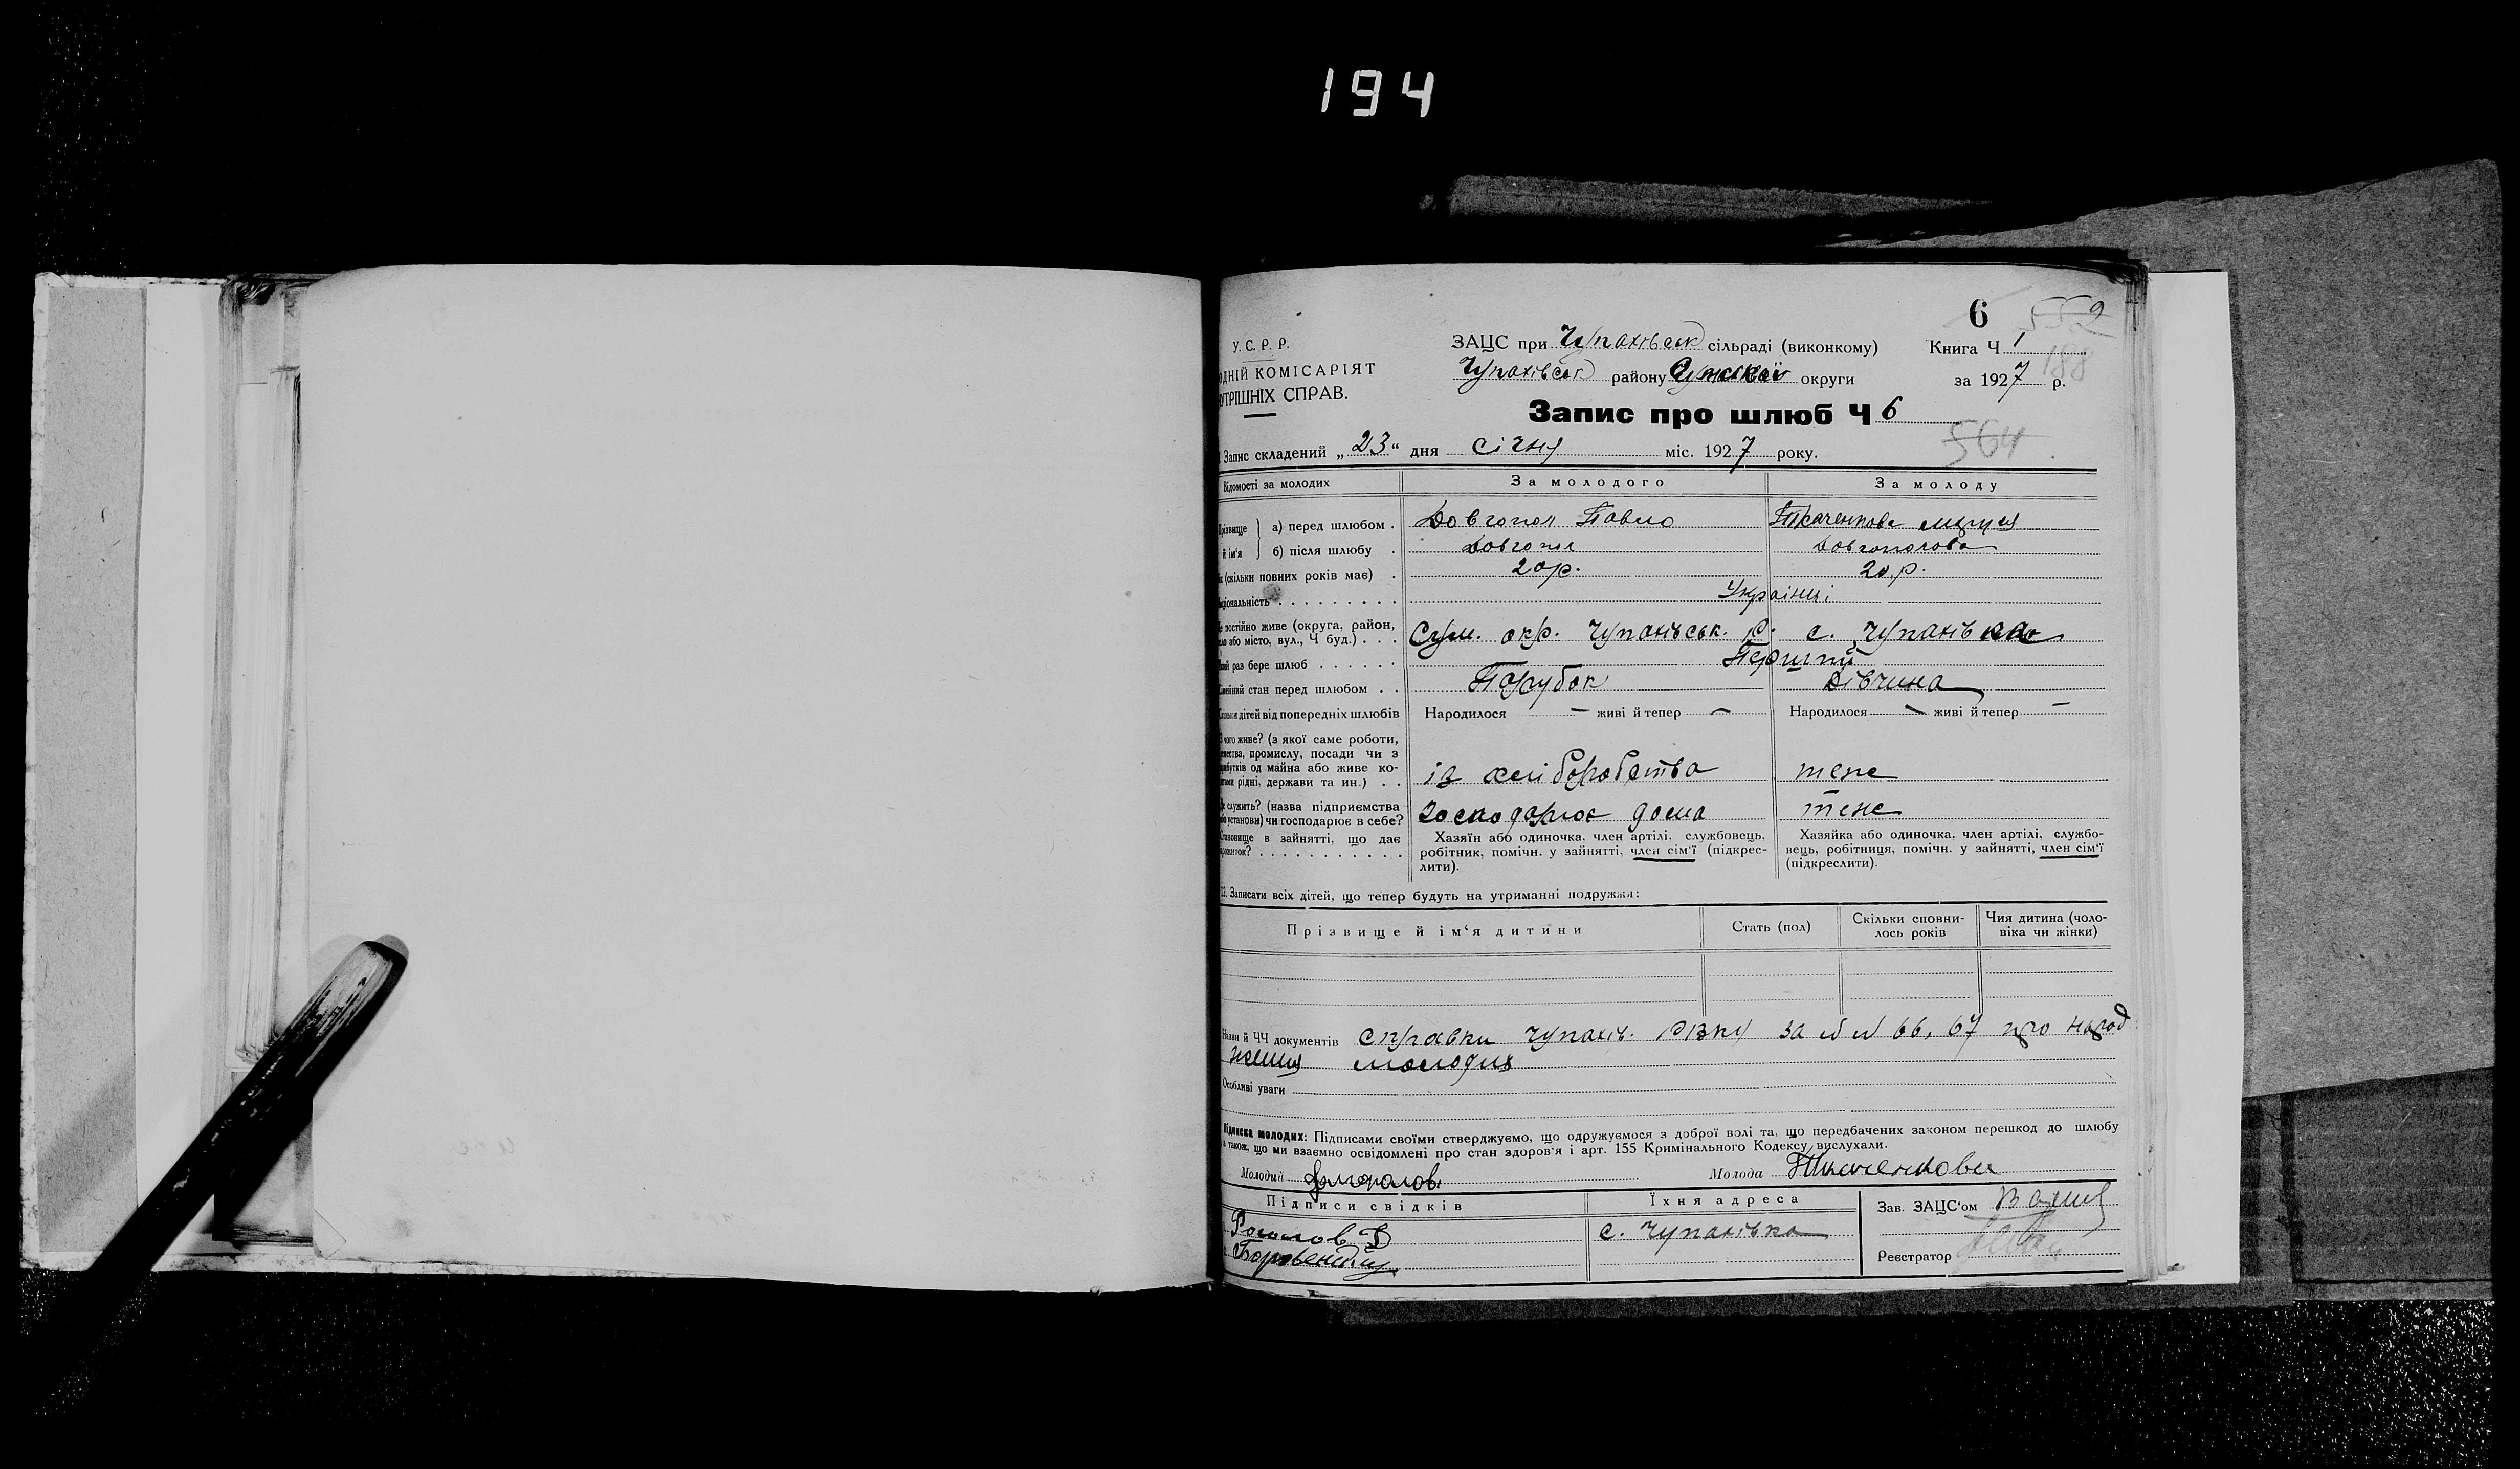 194
6 552 9
У. С. Р. Р.
ЗАЦС при Чупахівськ сільраді (виконкому) Книга Ч 1
188
ОДНІЙ КОМІСАРІЯТ
Чупахівськ району Сумської округи за 1927 р.
УТРІШНІХ СПРАВ.
Запис про шлюб Ч 6
564
Запис складений „23“ дня січня міс. 1927 року.
Відомості за молодих За молодого За молоду
Прізвище й ім'я а) перед шлюбом . Довгопол Павло Ткаченкова Маруся
б) після шлюбу . Довгопол Довгополова
(скільки повних років має) . 20 р. 20 р.
ціональність . . . . . . . . . Українці
е постійно живе (округа, район,
ело або місто, вул., Ч буд.) . . . Сум. окр. Чупахівськ. р. с. Чупахівка
кий раз бере шлюб . . . . . . Перший
імейний стан перед шлюбом . . Порубок Дівчина
кільки дітей від попередніх шлюбів Народилося — живі й тепер — Народилося — живі й тепер —
З чого живе? (з якої саме роботи,
мества, промислу, посади чи з
рибутків од майна або живе ко-
штами рідні, держави та ин.) . . із хліборобства теж
е служить? (назва підприємства
бо установи) чи господарює в себе? господарює дома теж
Становище в зайнятті, що дає
прожиток? . . . . . . . . . . .
Хазяїн або одиночка, член артілі, службовець,
робітник, помічн. у зайнятті, член сім'ї (підкрес-
лити).
Хазяйка або одиночка, член артілі, службо-
вець, робітниця, помічн. у зайнятті, член сім'ї
(підкреслити).
12. Записати всіх дітей, що тепер будуть на утриманні подружжя:
Прізвище й ім'я дитини Стать (пол) Скільки сповни-
лось років Чия дитина (чоло-
віка чи жінки)
Назви й ЧЧ документів Справки Чупахів. РВК за №№ 66, 67 про народ
ження молодих
Особливі уваги
Підписка молодих: Підписами своїми стверджуємо, що одружуємося з доброї волі та, що передбачених законом перешкод до шлюбу
а також, що ми взаємно освідомлені про стан здоров'я і арт. 155 Кримінального Кодексу вислухали.
Молодий Молода Ткаченкова
Підписи свідків Їхня адреса Зав. ЗАЦС'ом
с. Чупахівка
Реєстратор